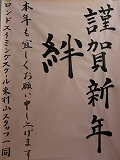 謹賀新年
絆
本年も宜しくお願い申し上げます
ロンドスイミングスクール東村山スタッフ一同